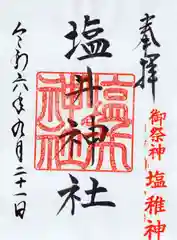 奉拝
御祭神 塩椎神
塩井神社
塩井神社
令和六年九月二十一日